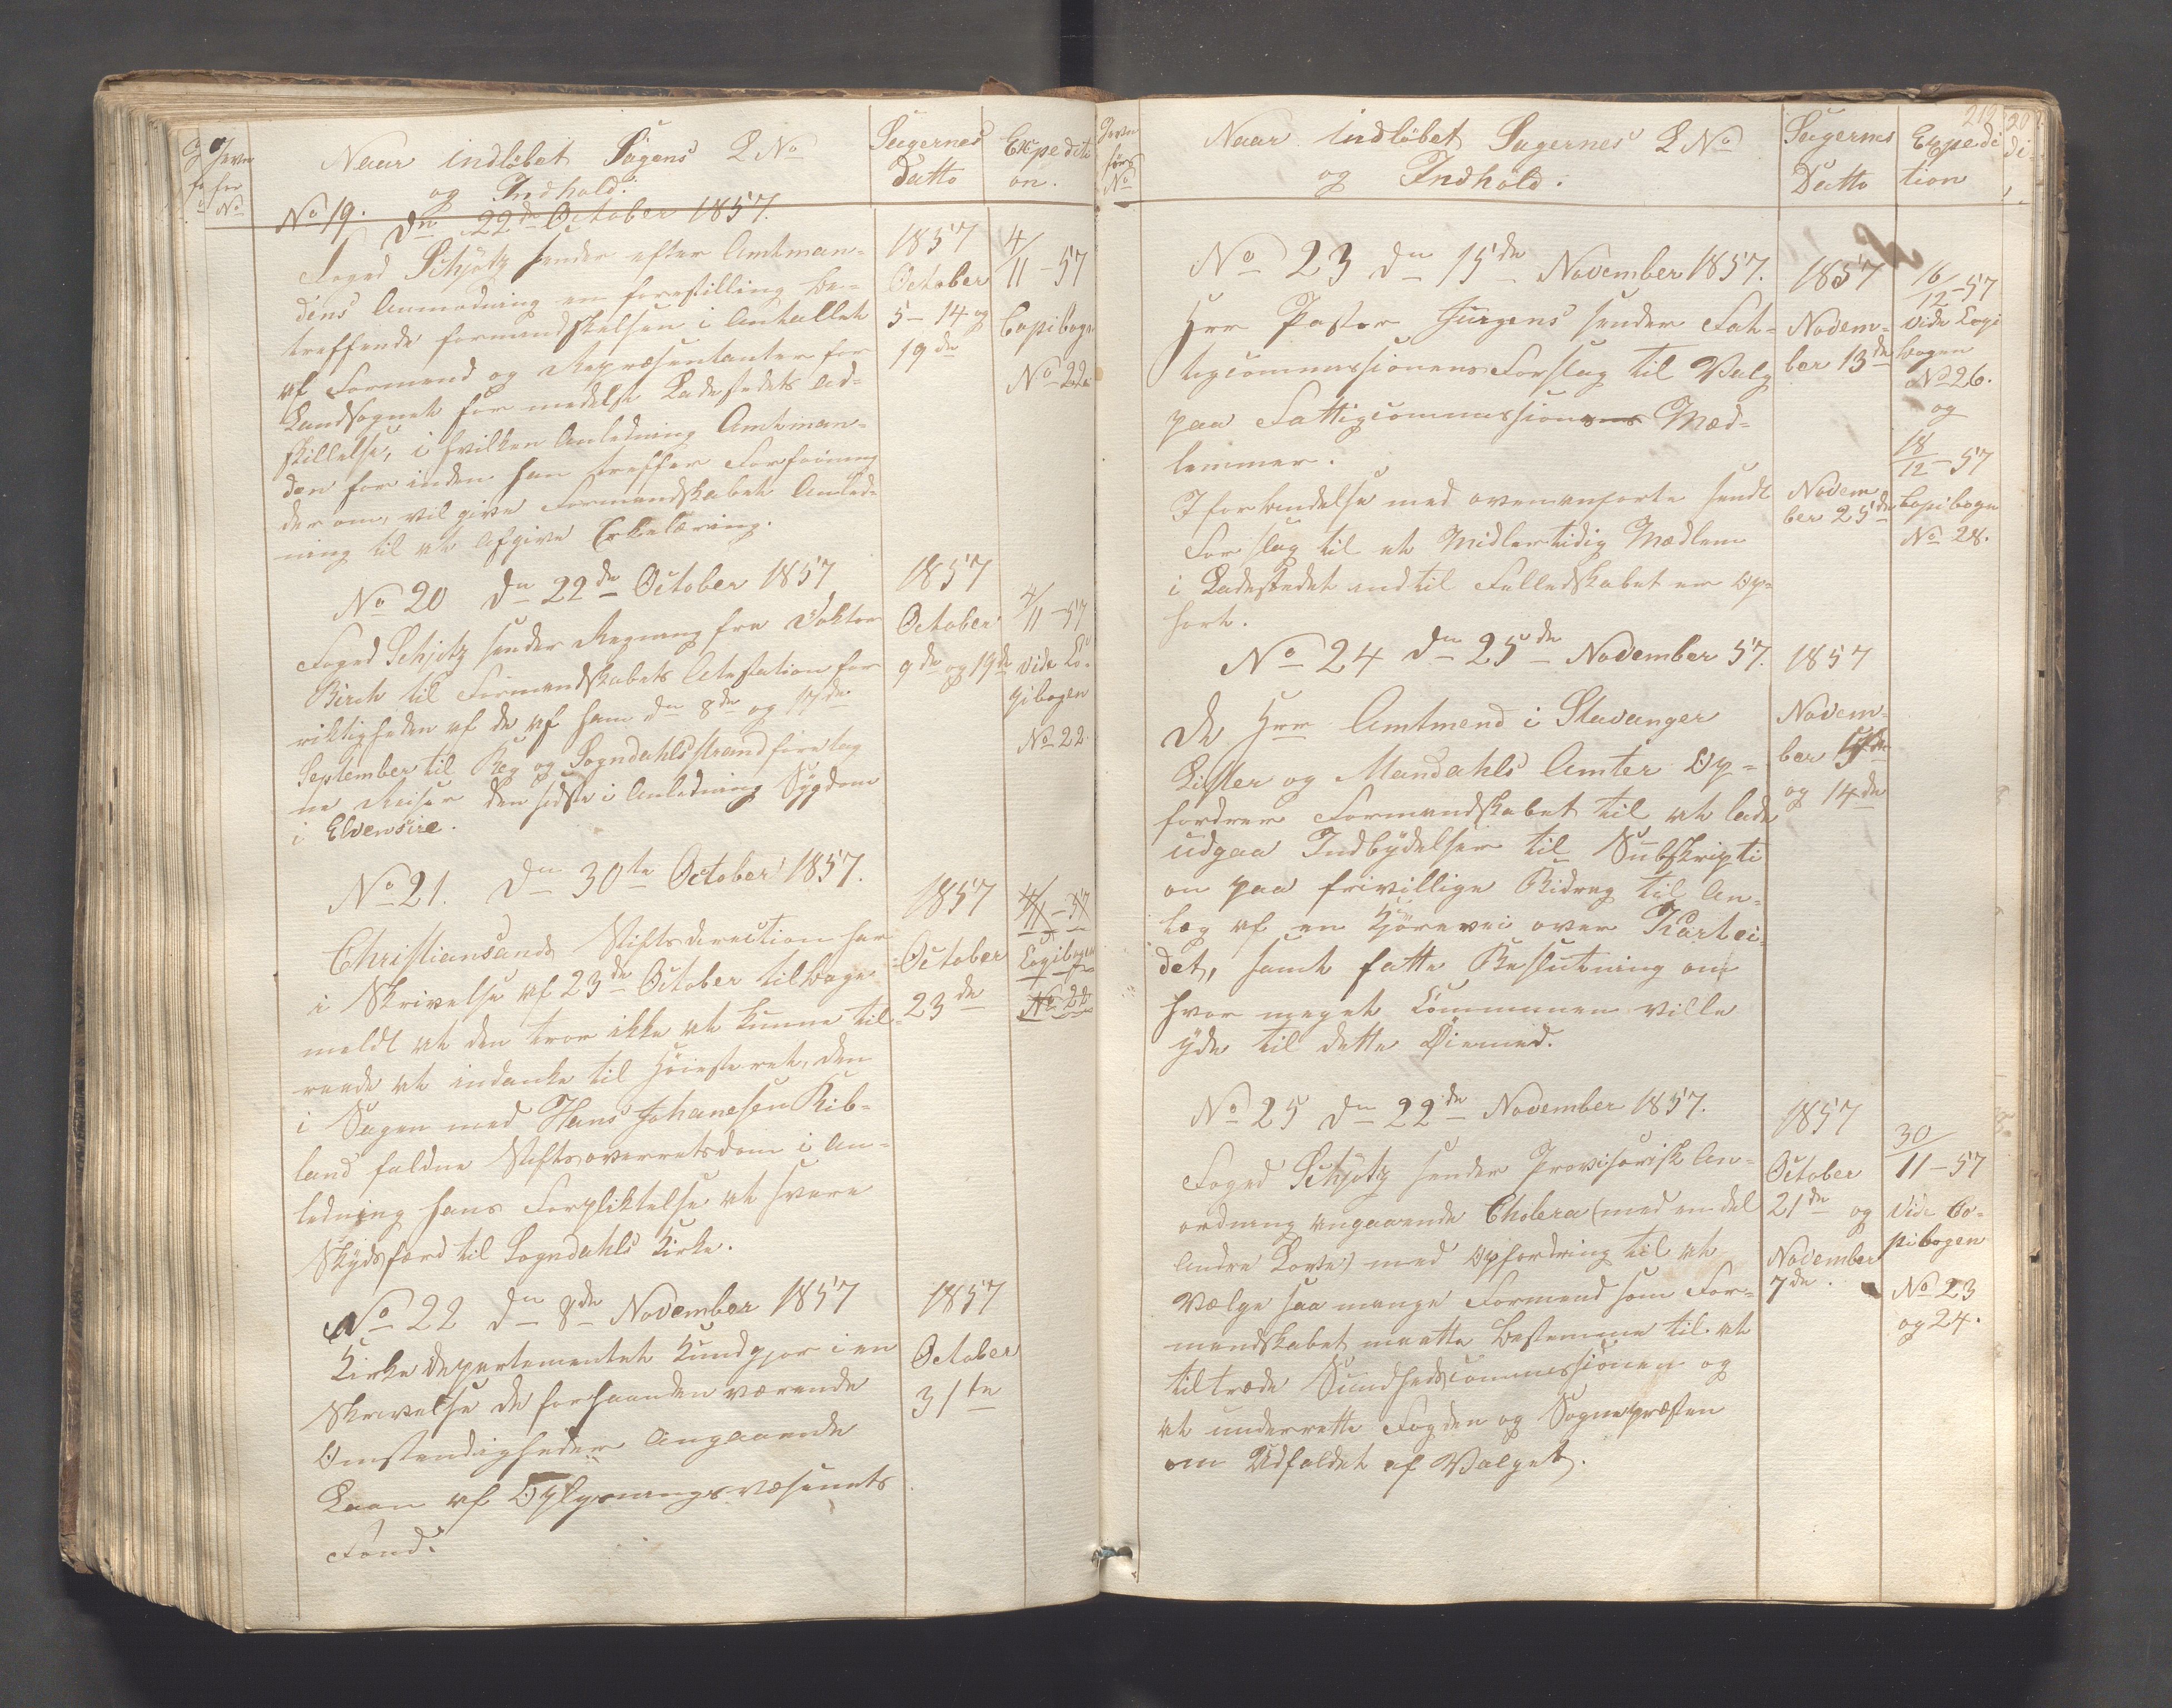 Naar indløbet Sagens L No
og Indhold.
Sagernes
Datto
Expediti
on.
No 19. Dn 22de October 1857.
Foged Schjøtz sender efter Amtman-
dens Anmodning en forestilling be-
treffende formindskelsen i Antallet
af Formend og Repræsentanter for
Landsognet formedelst Ladestedets Ad-
skillelse, i hvilken Anledning Amtman-
den for inden han treffer Forføining
derom, vil give Formandskabet Anled-
ning til at Afgive Erkelæring.
1857
October
5 - 14 og
19de
4/11 - 57
Copibogn
No 22
No 20 Dn 22de October 1857
Foged Schjøtz sender Regning fra Doktor
Birch til Formandskabets Atestation for
rictigheden af de af ham dn 8de og 17de
September til Reg og Sogndahlsstrand foretag
ne Reiser den sidste i Anledning Sygdom
i Elvensire.
1857
October
9de og 19de
4/11 - 57
vide Co-
pibogen
No 22.
No 21. Dn 30te October 1857.
Christiansands Stiftsdirection har
i Skrivelse af 23de October tilbage
meldt at den tror ikke at kunne til-
raade at indanke til Høiesteret, den
i Sagen med Hans Johanesen Rib-
land faldne Stiftsoverretsdom i An-
ledning hans Forpliktelse at svare
Skydsferd til Sogndahls Kirke.
1857
October
23de
4/11 - 57
Copibogen
No 22
No 22 Dn 8de November 1857
Kirke Departementet Kundgjør i en
Skrivelse de forhaanden værende
Omstendigheder Angaaende
Laan af Oplysningsvæsenets
Fond.
1857
October
31te
Naar indløbet Sagernes L No
og Indhold.
Sagernes
Datto
Expedi
tion
No 23 dn 15de November 1857.
Herr Pastor Jürgens sender Fat-
tigcommissionens Forslag til Valg
paa Fattigcommissionens Mæd-
lemmer.
I forbindelse med ovenanførte sendt
Forslag til et Midlertidig Mædlem
i Ladestedet indtil Felledskabet er Op-
hørt.
1857
Novem-
ber 13de
Novem
ber 25de
16/12 - 57
vide Copi
bogen
No 26.
og
18/12 - 57
Copibogn
No 28.
No 24 dn 25de November 57.
De Herr Amtmend i Stavanger
Lister og Mandahls Amter Op-
fordrer Formandskabet til at lade
udgaa Indbydelser til Subskripti
on paa frivillige Bidrag til An-
læg af en Kjørevei over Tkartei-
det, samt fatte Beslutning om
hvor meget Communen ville
yde til dette Øiemed.
1857
Novem-
ber
og 14de
No 25 dn 22de November 1857.
Foged Schjøtz sender Provisorisk An-
ordning angaaende Cholera (med en del
Andre Love) med Opfordring til at
Vælge saa mange Formend som For-
mandskabet maatte bestemme til at
tiltræde Sundhedscommissionen og
at underrette Fogden og Sognepræsten
om Udfaldet af Valget.
1857
October
21de og
November
7de.
30/11 - 57
Vide Co-
pibogen
No 23
og 24.